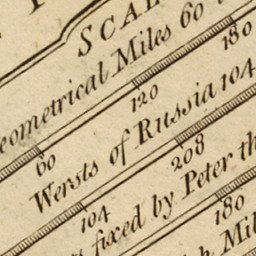 SCAL
eometrical Miles 60
60 120 180
Wersts of Russia 104
104 208
fixed by Peter th
180
Mil